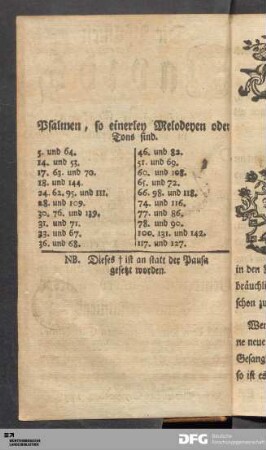 Psalmen, so einerley Melodeyen oder
Tons sind.
5. und 64.
14. und 53.
17. 63. und 70.
18. und 144.
24. 62. 95. und 111.
28. und 109.
30. 76. und 139.
31. und 71.
33. und 67.
36. und 68.
46. und 82.
51. und 69.
60. und 108.
65. und 72.
66. 98. und 118.
74. und 116.
77. und 86.
78. und 90.
100. 131. und 142.
117. und 127.
NB. Dieses † ist an statt der Pausa
gesetzt worden.
in den
bräuchli
schon zu
Wer
ne neue
Gesang
so ist es
DFG Deutsche
Forschungsgemeinschaft